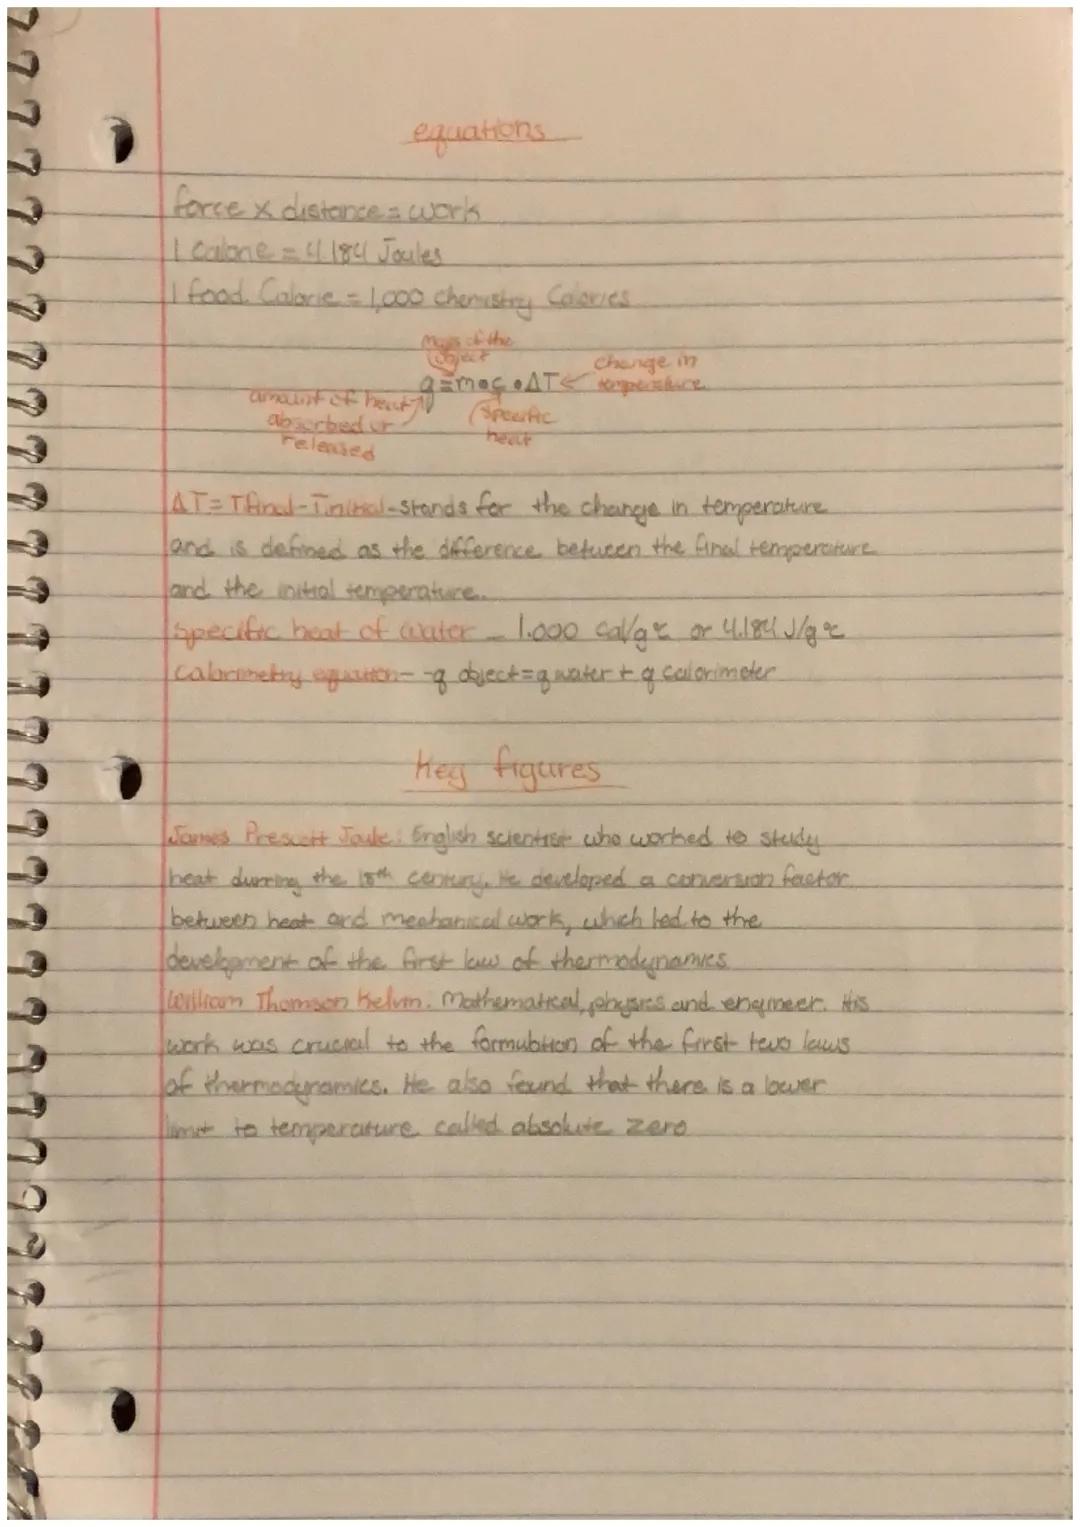 equations
force x distance = work
1 Calorie = 4.184 Joules
1 food Calorie = 1,000 chemistry Calories
mass of the
object
change in
q=m•c•ΔT temperature
amount of heat
absorbed or
released
specific
heat
ΔT= Tfinal-Tinitial-stands for the change in temperature
and is defined as the difference between the final temperature
and the initial temperature.
specific heat of water - 1.000 cal/g°c or 4.184 J/g°c
Calorimetry equation- -q object=q water + q calorimeter
Key figures
James Prescott Joule: English scientist who worked to study
heat durring the 18th century. He developed a conversion factor
between heat and mechanical work, which led to the
development of the first law of thermodynamics
William Thomson Kelvin. Mathematical, physics and engineer. His
work was crucial to the formulation of the first two laws
of thermodynamics. He also found that there is a lower
limit to temperature called absolute zero